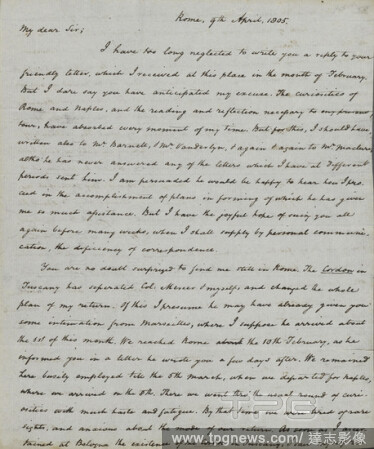 Rome, 9th April, 1805.
My dear Sir;
I have too long neglected to write you a reply to your
friendly letter, which I received at this place in the month of February.
But I dare say you have anticipated my excuse. The curiosities of
Rome and Naples, and the reading and reflection necessary to any
town, have absorbed every moment of my time. But for this, I should have
written also to Mr. Barnett, & Mr. Vanderlyn, & again & again to Mr. Maclure,
altho he has never answered any of the letters which I have at different
periods sent him. I am persuaded he would be happy to hear how I pro
ceed in the accomplishment of plans in forming of which he has given
me so much assistance. But I have the joyful hope of seeing you all
again before many weeks, when I shall supply by personal communi
cation, the deficiency of correspondence.
You are no doubt surprized to find me still in Rome. The Cordon in
Tuscany has seperated Col. Mercer & myself, and changed the whole
plan of my return. Of this I presume he may have already given you
some intimation from Marseilles, where I suppose he arrived about
the 1st of this month. We reached Rome about the 10th February, as he
informed you in a letter he wrote you a few days after. We remained
here busily employed till the 5th March, when we departed for Naples,
where we arrived on the 8th. There we went thro' the usual round of curio-
sities with much haste and fatigue. By that time we were tired of rare
sights, and anxious about the mode of our return. As soon as
tained at Bologna the existence of
www.tpgnews.com 達志影像